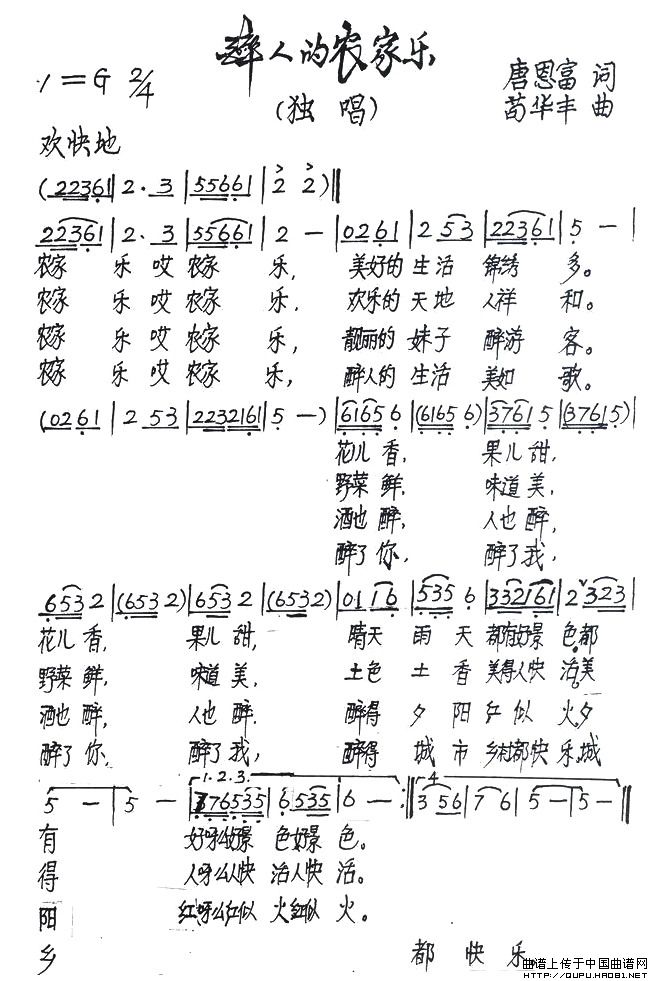 醉人的农家乐
1=G 2/4
(独 唱)
唐恩富 词
苟华丰 曲
欢快地
(22361|2.3|55661|2 2)||
22361|2.3|55661|2 -|0261|2 53|22361|5 -|
农家 乐 哎 农家 乐, 美好的 生活 锦绣 多。
农家 乐 哎 农家 乐, 欢乐的 天地 人祥 和。
农家 乐 哎 农家 乐, 靓丽的 妹子 醉游 客。
农家 乐 哎 农家 乐, 醉人的 生活 美如 歌。
(0261|2 53|2232161|5 -)|6165 6|(6165 6)|3761 5|(3761 5)|
花儿 香, 果儿 甜,
野菜 鲜, 味道 美,
酒也 醉, 人也 醉,
醉了 你, 醉了 我,
653 2|(653 2)|653 2|(653 2)|01 16|535 6|332161|2 323|
花儿 香, 果儿 甜, 晴天 雨 天 都有好景 色,都
野菜 鲜, 味道 美, 土色 土 香 美得人快 活,美
酒也 醉, 人也 醉. 醉得 夕 阳 红 似 火,夕
醉了 你, 醉了 我, 醉得 城 市 乡村都快 乐,城
1.2.3. 4
5 -|5 -|376535|6 535|6 -:||3 56|7 6|5 -|5 -||
有 好呀么好景 色好景 色。
得 人呀么人快 活人快 活。
阳 红呀么红似 火红似 火。
乡 都 快 乐。
曲谱上传于中国曲谱网
HTTP://QUPU.HAO81.NET